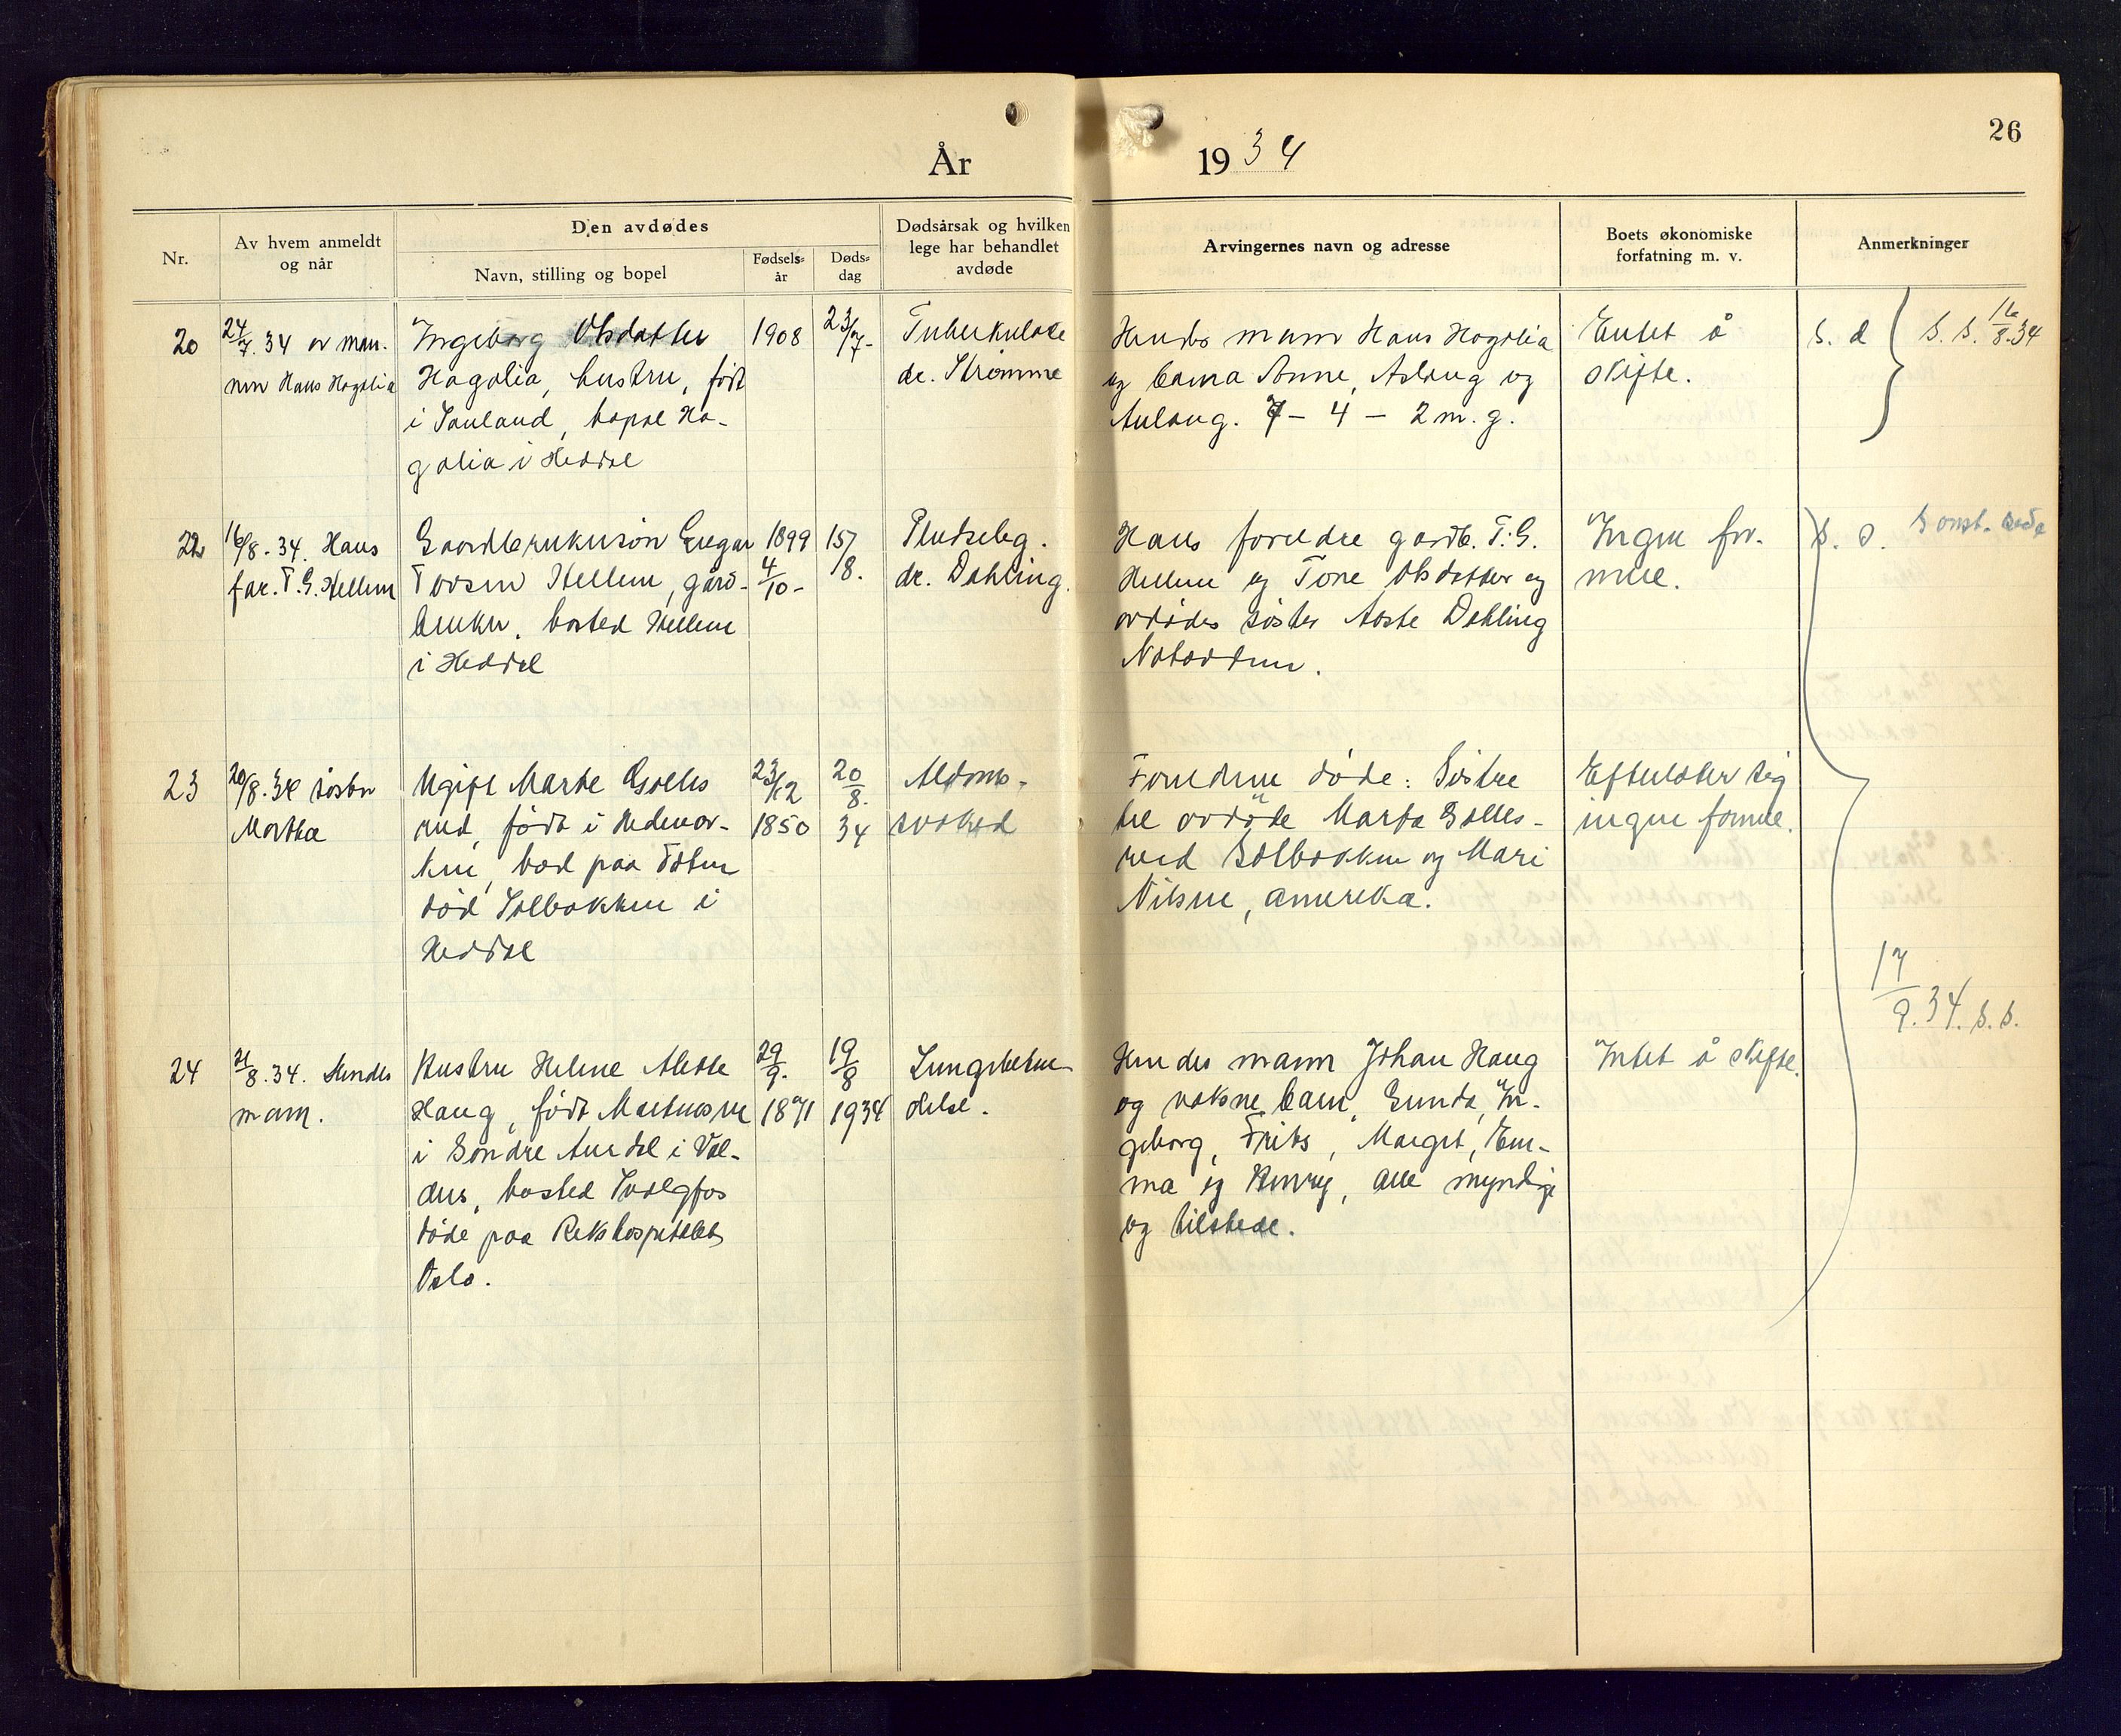 26
År 1934
Nr.
Av hvem anmeldt
og når
Den avdødes
Navn, stilling og bopel
Fødsels-
år
Døds-
dag
Dødsårsak og hvilken
lege har behandlet
avdøde
Arvingernes navn og adresse
Boets økonomiske
forfatning m. v.
Anmerkninger
20
24/7. 34 av man-
nen Hans Hagalia
Ingeborg Olsdatter
Hagalia, hustru, født
i Sauland, bopæl Ha-
galia i Heddal
1908
23/7-
Tuberkulose
dr. Strømme
Hendes mann Hans Hagalia
og barna Anne, Aslaug og
Aulaug. 7 - 4 - 2 m. g.
Entet å
skifte.
s. d
S. S. 16/8.34
22
16/8. 34. Hans
far. T. G. Hellem
Gaardbrukersøn Gregar
Tovsen Hellem, gård-
bruker, bosted Hellem
i Heddal
1899
4/10-
15/
8.
Pludseleg.
dr. Dahling.
Hans foreldre gardb. T. G.
Hellem og Tone Olsdatter og
avdødes søster Aaste Dahling
Notodden.
Ingen for-
mue.
S. d.
23
20/8. 34 søster
Martha
Ugift Marte
rud, født i Hedmar-
ken, boed paa Toten
død Solbakken i
Heddal
23/12
1850
20/8.
34
Aldoms-
svakhed
Foreldrene døde: Søstre
til avdøde Marta
rud Solbakken og Mari
Nilsen, amerika.
Efterlater sig
ingen formue.
17/9.34. S. S.
24
21/8. 34. Hendes
mann.
Hustru Helene Alette
Haug, født Martinsen
i Søndre Aurdal i Val-
dres, bosted Svælgfos
døde paa Rikshospitalet
Oslo.
29/9.
1871
19/8
1934
Lungebeten-
delse.
Hendes mann Johan Haug
og voksne barn, Gunda, In-
geborg, Frits, Margit, Em-
ma og Henry, alle myndige
og tilstede.
Intet å skifte.